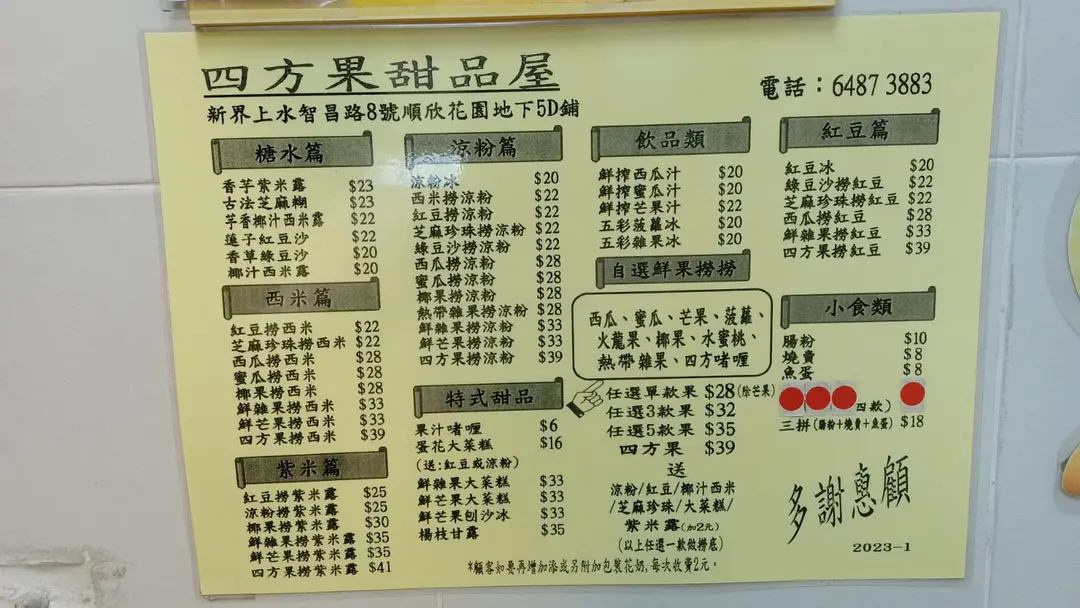 四方果甜品屋
新界上水智昌路8號順欣花園地下5D鋪
電話：6487 3883
糖水篇
香芋紫米露 $23
古法芝麻糊 $23
芋香椰汁西米露 $22
蓮子紅豆沙 $22
香草綠豆沙 $20
椰汁西米露 $20
西米篇
紅豆撈西米 $22
芝麻珍珠撈西米 $22
西瓜撈西米 $28
蜜瓜撈西米 $28
椰果撈西米 $28
鮮雜果撈西米 $33
鮮芒果撈西米 $33
四方果撈西米 $39
紫米篇
紅豆撈紫米露 $25
涼粉撈紫米露 $25
椰果撈紫米露 $30
鮮雜果撈紫米露 $35
鮮芒果撈紫米露 $35
四方果撈紫米露 $41
涼粉篇
涼粉冰 $20
西米撈涼粉 $22
紅豆撈涼粉 $22
芝麻珍珠撈涼粉 $22
綠豆沙撈涼粉 $22
西瓜撈涼粉 $28
蜜瓜撈涼粉 $28
椰果撈涼粉 $28
熱帶雜果撈涼粉 $28
鮮雜果撈涼粉 $33
鮮芒果撈涼粉 $33
四方果撈涼粉 $39
特式甜品
果汁啫喱 $6
蛋花大菜糕 $16
(送:紅豆或涼粉)
鮮雜果大菜糕 $33
鮮芒果大菜糕 $33
鮮芒果刨沙冰 $33
楊枝甘露 $35
飲品類
鮮搾西瓜汁 $20
鮮搾蜜瓜汁 $20
鮮搾芒果汁 $22
五彩菠蘿冰 $20
五彩雜果冰 $20
自選鮮果撈撈
西瓜、蜜瓜、芒果、菠蘿、
火龍果、椰果、水蜜桃、
熱帶雜果、四方啫喱
任選單款果 $28(除芒果)
任選3款果 $32
任選5款果 $35
四方果 $39
送
涼粉/紅豆/椰汁西米
/芝麻珍珠/大菜糕/
紫米露(加2元)
(以上任選一款做撈底)
紅豆篇
紅豆冰 $20
綠豆沙撈紅豆 $22
芝麻珍珠撈紅豆 $22
西瓜撈紅豆 $28
鮮雜果撈紅豆 $33
四方果撈紅豆 $39
小食類
腸粉 $10
燒賣 $8
魚蛋 $8
四款)
三拼(腸粉+燒賣+魚蛋) $18
多謝惠顧
2023-1
*顧客如要再增加添或另附加包裝花奶,每次收費2元。